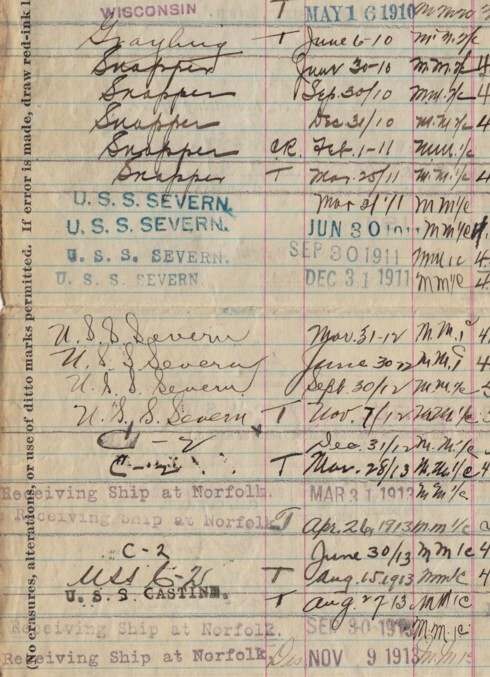 (No erasures, alterations, or use of ditto marks permitted. If error is made, draw red-ink l
WISCONSIN T MAY 16 1910
Grayling T June 6-10 M.M.1/c
Snapper June 30-10 M.M.1/c 4
Snapper Sep. 30/10 M.M.1/c 4
Snapper Dec 31/10 M.M.1/c 4
Snapper C.R. Feb. 1-11 M.M.1/c
Snapper T Mar. 25/11 M.M.1/c 4
U. S. S. SEVERN. Mar 31/11 M M 1/c
U. S. S. SEVERN. JUN 30 1911 M M 1/c 4
U. S. S. SEVERN. SEP 30 1911 MM 1c 4
U. S. S. SEVERN. DEC 31 1911 M M 1/c 4
U.S.S. Severn Mar. 31-12 M.M.1c 4
U.S.S. Severn June 30 M.M.1c 4
U.S.S. Severn Sept. 30/12 M.M.1/c
U.S.S. Severn T Nov. 7/12 M.M.1/c
C-2 Dec. 31/12 M.M.1/c
C-2 T Mar. 28/13 M.M.1/c 4
Receiving Ship at Norfolk. MAR 31 1913 M M 1/c
Receiving Ship at Norfolk T Apr. 26, 1913 M M 1/c
C-2 June 30/13 M M 1c 4
USS C-2 T Aug. 15 1913 M M 1c 4
U. S. S. CASTINE. T Aug. 27-13 M M 1c
Receiving Ship at Norfolk. SEP 30 1913 M.M.1c
Receiving Ship at Norfolk Dis NOV 9 1913 M M 1c